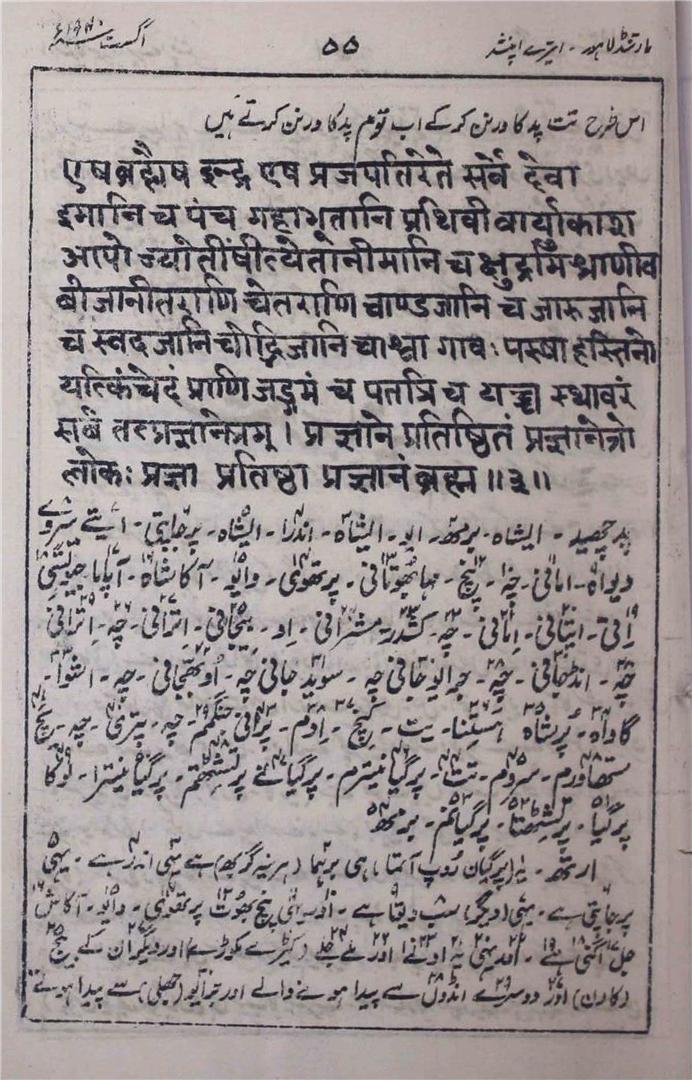 مارتنڈ لاہور - ایترے اپنشد
۵۵
اگست ۱۹۴۰ء
اس طرح تت پد کا ورنن کر کے اب توم پد کا ورنن کرتے ہیں
एष ब्रह्मैष इन्द्र एष प्रजपतिरेते सर्वे देवा
इमानि च पंच महाभूतानि प्रथिवी वार्याकाश
आपो ज्योतींषीत्येतानीमानि च क्षुद्रमिश्राणीव
बीजानीतराणि चेतराणि चाण्डजानि च जारुजानि
च स्वेदजानि चोद्भिजानि चाश्वा गावः परुषा हस्तिनो
यत्किंचेदं प्राणि जङ्गमं च पतत्रि च यच्च स्थावरं
सर्वं तत्प्रज्ञानेत्रम् । प्रज्ञाने प्रतिष्ठितं प्रज्ञानेत्रो
लोकः प्रज्ञा प्रतिष्ठा प्रज्ञानं ब्रह्म ॥३॥
پد چھید - ایشاہ - برمھ - ایشاہ - اندرا - ایشاہ - پرجاپتی - ایتے سروے
دیواہ - امانی - چہ - پنچ - مہابھوتانی - پرتھوی - وایو - آکاشاہ - آپاہ جیوتشی
اتی - ایتانی - امانی - چہ - کشدر - مشرانی - او - بیجانی - اترانی - چہ - اترانی
چہ - انڈجانی - چہ - جرایوجانی چہ - سویدجانی چہ - اودبھجانی - چہ - اشوا -
گاواہ - پرشاہ - ہستینا - یت - کنچ - ادم - پرانی جنگمم - چہ - پتری - چہ - یچ
ستھاورم - سروم - تت - پرگیا نیترم - پرگیانے پرتشٹھتم - پرگیا نیترا - لوکا
پرگیا - پرتشٹھا - پرگیانم - برمھ
ارتھ - یہ (پرگیان روپ آتما) ہی برہما (ہرنیہ گربھ) ہے یہی اندر ہے - یہی
پرجاپتی ہے - یہی (دیگر) سب دیوتا ہے - اور یہی پنچ بھوت پرتھوی - وایو - آکاش
جل اگنی ہے - اور یہی یہ ادنےٰ اور ملے جلے (کیڑے مکوڑے) اور دیگر ان کے بیج
(کارن) اور دوسرے انڈوں سے پیدا ہونے والے اور جرایو (جھلی) سے پیدا ہونے